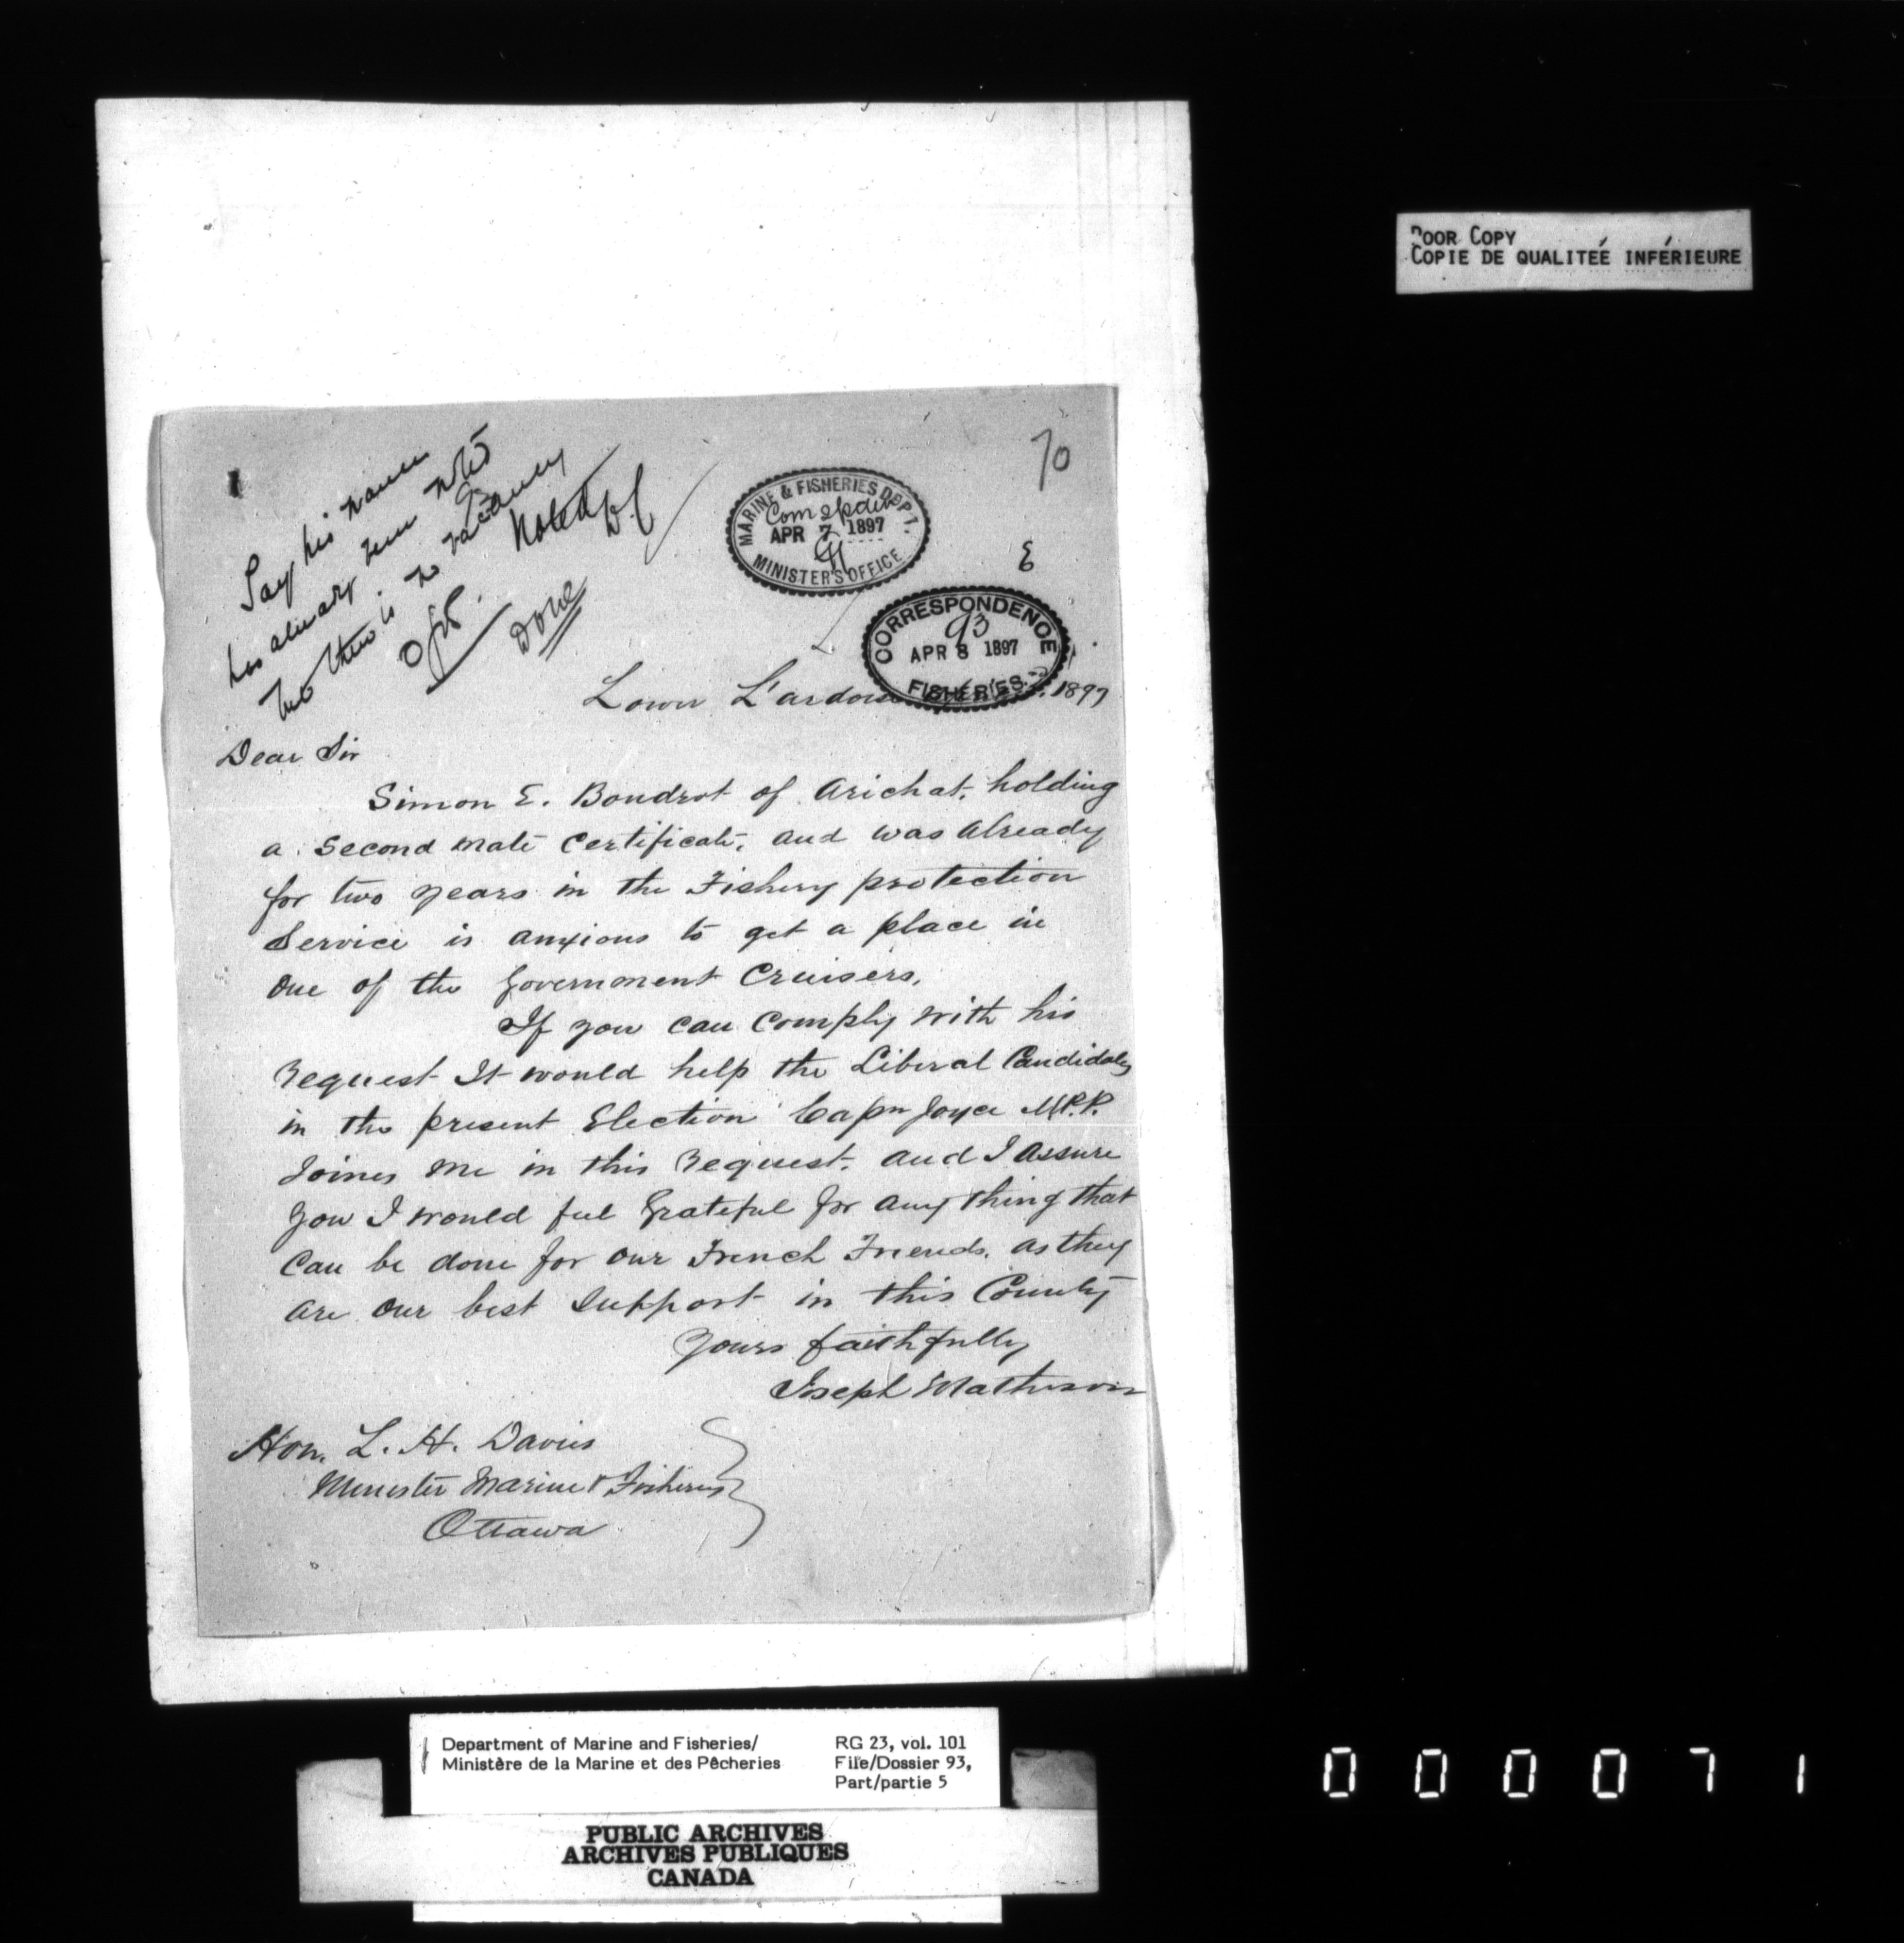 POOR COPY
COPIE DE QUALITEÉ INFÉRIEURE
70
Say his name
has already been noted
but there is no vacancy
Noted
Done
MARINE & FISHERIES DEPT.
APR 7 1897
MINISTER'S OFFICE
E
CORRESPONDENCE
93
APR 8 1897
FISHERIES
Lower L'ardoise 1897
Dear Sir
Simon E. Boudrot of Arichat, holding
a Second Mate Certificate, and was Already
for two years in the Fishery protection
Service is anxious to get a place in
One of the Government Cruisers.
If you can Comply with his
Request It would help the Liberal Candidates
in the present Election Capn Joyce M.P.P.
Joines me in this Request. and I Assure
You I would feel Grateful for any thing that
Can be done for our French Friends. as they
are our best Support in this County
Yours faithfully
Joseph Matheson
Hon. L. H. Davies
Minister Marine & Fisheries
Ottawa
Department of Marine and Fisheries/
Ministère de la Marine et des Pêcheries
RG 23, vol. 101
File/Dossier 93,
Part/partie 5
PUBLIC ARCHIVES
ARCHIVES PUBLIQUES
CANADA
000071